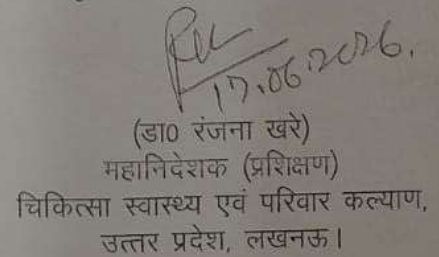 17.06.2026.
(डा0 रंजना खरे)
महानिदेशक (प्रशिक्षण)
चिकित्सा स्वास्थ्य एवं परिवार कल्याण,
उत्तर प्रदेश, लखनऊ।